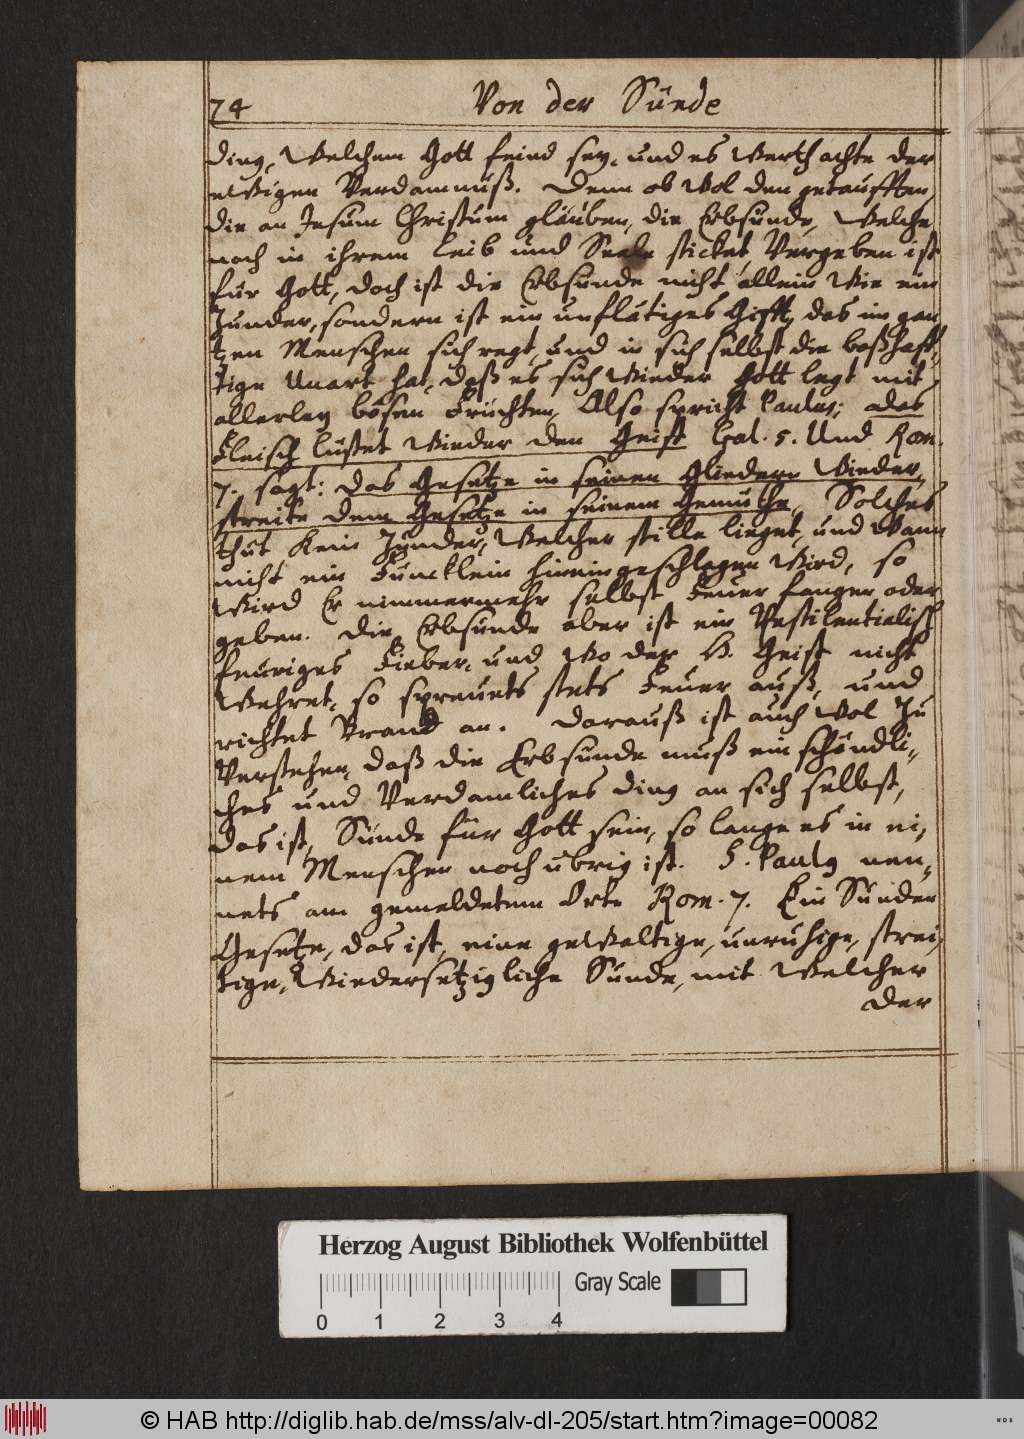 74 Von der Sünde
ding, Welchem Gott feind sey, und es Werth achte der
eWigen Verdamnüß. Denn ob Wol den getaufften,
die an Jesum Christum gläuben, die Erbsünde, Welche
noch in ihrem Leib und Seele sticket Vergeben ist
für Gott, doch ist die Erbsünde nicht allein Wie ein
Zunder, sondern ist ein unflätiges Gifft, das im gan
tzen Menschen sich regt, und in sich selbst die boßhaff-
tige Unart hat, daß es sich Wieder Gott legt mit
allerley bösen Früchten. Also spricht Paulus; das
Fleisch lüstet Wieder den Geist Gal. 5. Und Rom.
7. sagt: das Gesetze in seinen Gliedern Wieder,
streite dem Gesetze in seinem Gemüthe, Solches
thut kein Zunder, Welcher stille lieget, und Wann
nicht ein Füncklein hinein geschlagen Wird, so
Wird Er nimmermehr selbst Feuer fangen oder
geben. die Erbsünde aber ist ein Pestilentialisch
feuriges Fieber, und Wo der H. Geist nicht
Wehret, so spreuets stets Feuer auß, und
richtet Brand an. Darauß ist auch Wol Zu
Verstehen, daß die Erbsünde muß ein schändli-
ches und Verdamliches ding an sich selbst,
das ist, Sünde für Gott sein, so lange es in ei,
nem Menschen noch übrig ist. S. Paulus nen-
nets am gemeldetem Orte Rom. 7. Ein Sünden
Gesetze, das ist, eine geWaltige, unruhige, strei,
tige, Wiedersetzigliche Sünde, mit Welcher
der
Herzog August Bibliothek Wolfenbüttel
Gray Scale
0 1 2 3 4
© HAB http://diglib.hab.de/mss/alv-dl-205/start.htm?image=00082